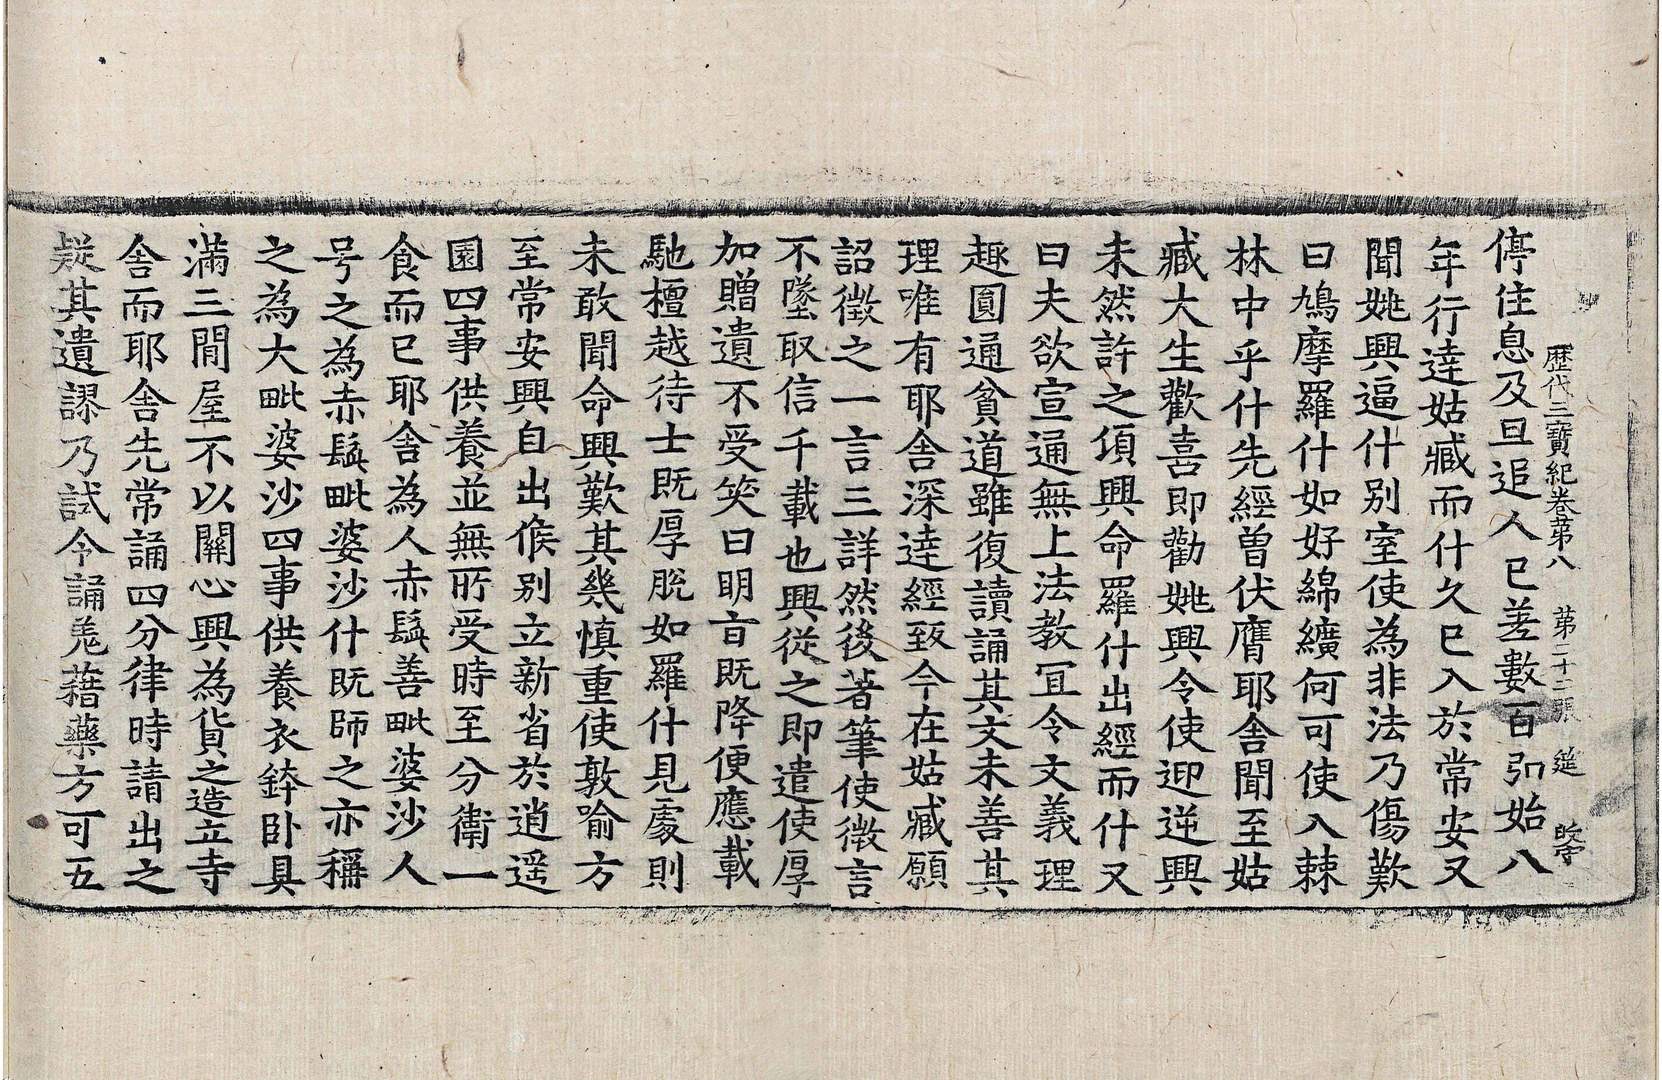 歷代三寶紀卷苐八　苐二十二張　筵
停住息及旦追人已差數百里始八
年行達姑臧而什久已入於常安又
聞姚興逼什别室使為非法乃傷歎
曰鳩摩羅什如好綿纊何可使入棘
林中乎什先經曾伏膺耶舍聞至姑
臧大生歡喜即勸姚興令使迎逆興
未然許之頃興命羅什出經而什又
曰夫欲宣通無上法教冝令文義理
趣圓通貧道雖復讀誦其文未善其
理唯有耶舍深達經致今在姑臧願
詔徵之一言三詳然後著筆使微言
不墜取信千載也興從之即遣使厚
加贈遺不受笑曰明旨既降便應載
馳檀越待士既厚脫如羅什見處則
未敢聞命興歎其幾慎重使敦喻方
至常安興自出候别立新省於逍遥
園四事供養並無所受時至分衛一
食而已耶舍為人赤鬚善毗婆沙人
号之為赤鬚毗婆沙什既師之亦稱
之為大毗婆沙四事供養衣鉢卧具
滿三閒屋不以關心興為貨之造立寺
舍而耶舍先常誦四分律時請出之
疑其遺謬乃試令誦羌藉藥方可五